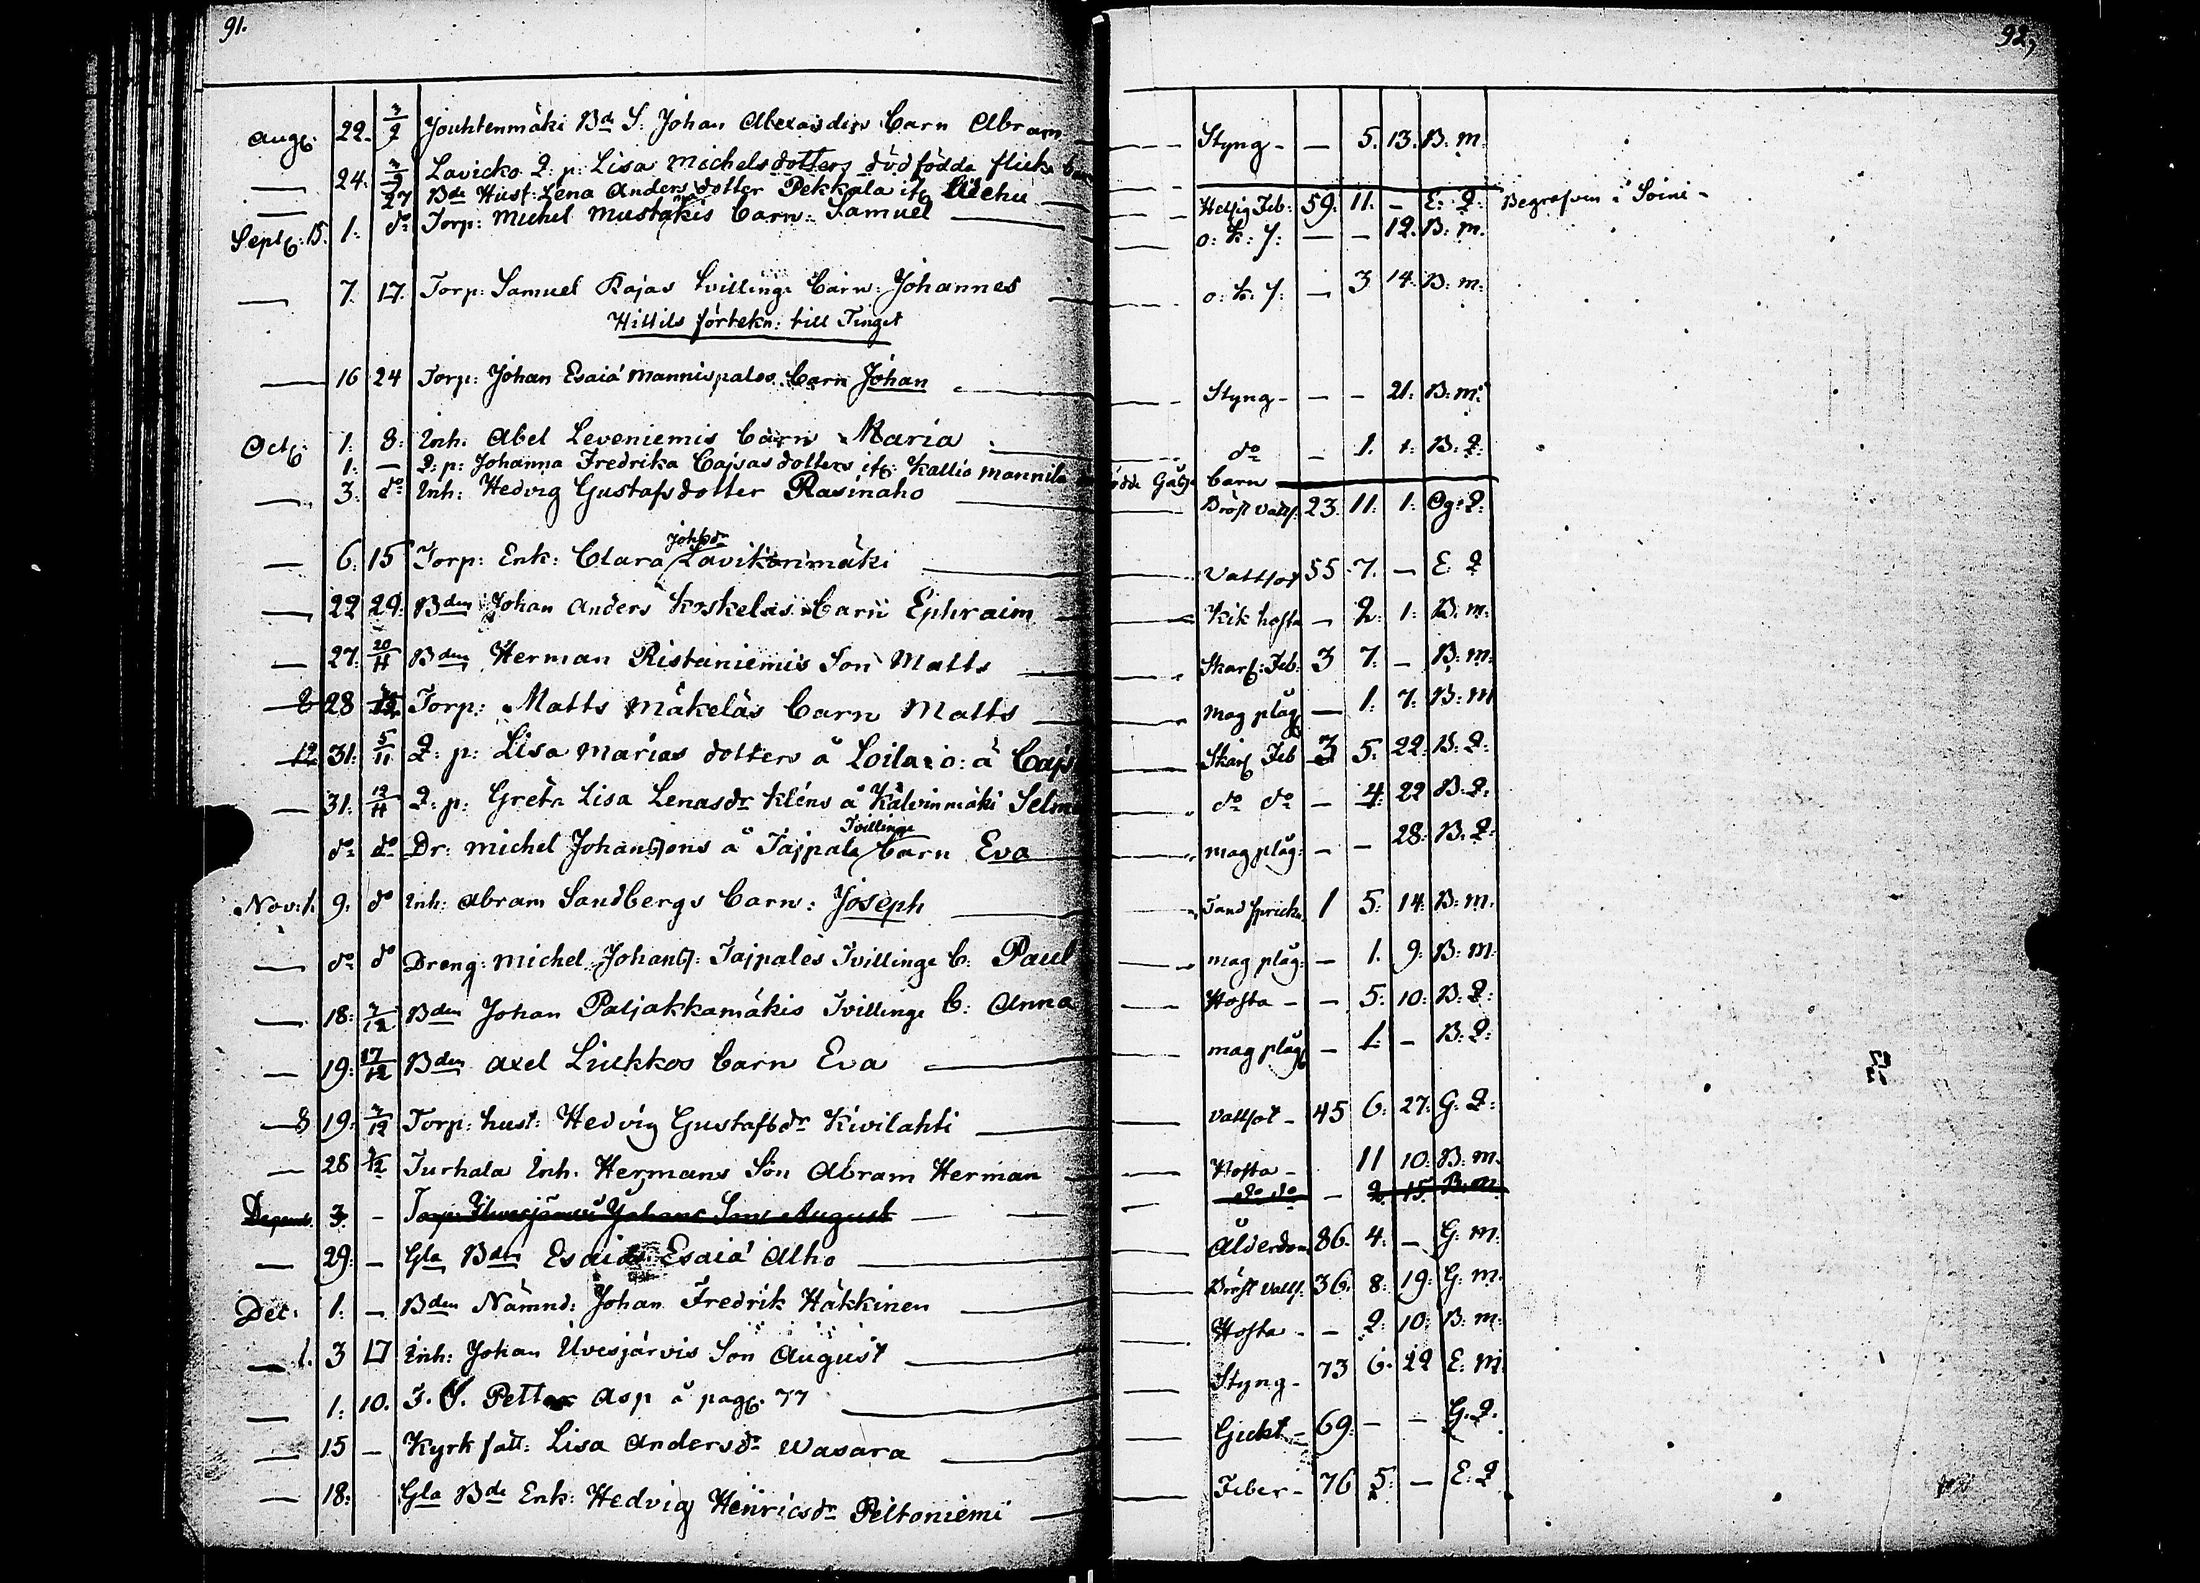 91.
92,
Augt: 22. 3/9 Jouhtenmäki Bd S: Johan Abexasders Barn Abram — Styng - — 5. 13. B. m.
— 24. 3/9 Lavicko Q: p: Lisa Michelsdotters dödfödda flicke
— 27 Bde Hust: Lena Andersdotter Pekkala — Hetsig Feb: 59. 11. — E. Q. Begrafven i Soini -
Sept: 15. 1: do Torp: Michel Mustakis Barn: Samuel — o: k: s: — — 12. B. m.
— 7. 17. Torp: Samuel Rajas Tvillinge Barn: Johannes — o: k: s: — 3 14. B: m:
Hittils förtekn: till Tinget
— 16 24 Torp: Johan Esaiä Mannispalos Barn Johan — Styng - — - 21: B: m:
Oct: 1: 8: Inh: Abel Leveniemis Barn Maria — do — 1. 1: B: Q:
1: — Q: p: Johanna Fredrika Cajsasdotters Kallio Mannila födde Gåsse barn
— 3: do Inh: Hedvig Gustafsdotter Rasinaho — Bröst vatts: 23. 11. 1: Og: Q:
— 6. 15 Torp: Enk: Clara Johsdr Lavikarimäki — Vattsot 55 7. — E: Q
— 22 29: Bden Johan Anders Koskelas Barn Ephraim — Kik hosta — 2: 1: B: m:
— 27. 20/11 Bden Herman Ristaniemis Son Matts — Skarl: Feb: 3 7: — B: m:
28 Torp: Matts Mäkeläs Barn Matts — mag plåg — 1: 7. B: m
12 31: 5/11 Q: p: Lisa Marias dotters å Loila o: ä Cajs — Skarl Feb 3 5. 22: B: Q:
— 31: 12/11 Q: p: Greta Lisa Lenasdr Kléns å Kälvinmäki Selm — do do — 4: 22 B: Q:
do do Dr: Michel Johanssons å Tajpale Tvillinge Barn Eva — mag plåg: — — 28: B. Q:
Nov: 1. 9: do Inh: Abram Sandbergs Barn: Joseph — Tand sprick 1 5: 14: B: m.
— do do Dreng: Michel Johans: Tajpales Tvillinge B: Paul — mag plåg: — 1. 9: B: m:
— 18: 7/12 Bden Johan Paljakkamäkis Tvillinge B: Anna — Hosta - — 5: 10: B. Q:
— 19: 17/12 Bden Axel Liukkos Barn Eva — mag plåg — 1: — B: Q:
8 19: 7/12 Torp: hust: Hedvig Gustafsdr Kivilahti — Vattsot - 45 6: 27: G: Q:
— 28 7/12 Turhala Inh: Hermans Son Abram Herman — Hosta - 11 10: B: m.
3 - Torp: Ilvesjärvis Johans Sons August — do do — 2 15 B: m
— 29: — Gla Bden Esaias Esaiä Alho — Ålderdom 86. 4: — G: m:
Dec: 1: — Bden Nämnd: Johan Fredrik Häkkinen — Bröst vatts: 36. 8: 19: G: m.
— 1. 3 17 Inh: Johan Ilvesjärvis Son August — Hosta - — 2: 10: B: m:
— 1: 10. F. S. Petter Asp å pag: 77 — Styng - 73 6: 22 E: m:
— 15 — Kyrk fatt: Lisa Andersdr Wasara — Gickt - 69: — — G. Q.
— 18: Gla Bde Enk: Hedvig Henricsdr Peltoniemi — Feber - 76 5: — E: Q